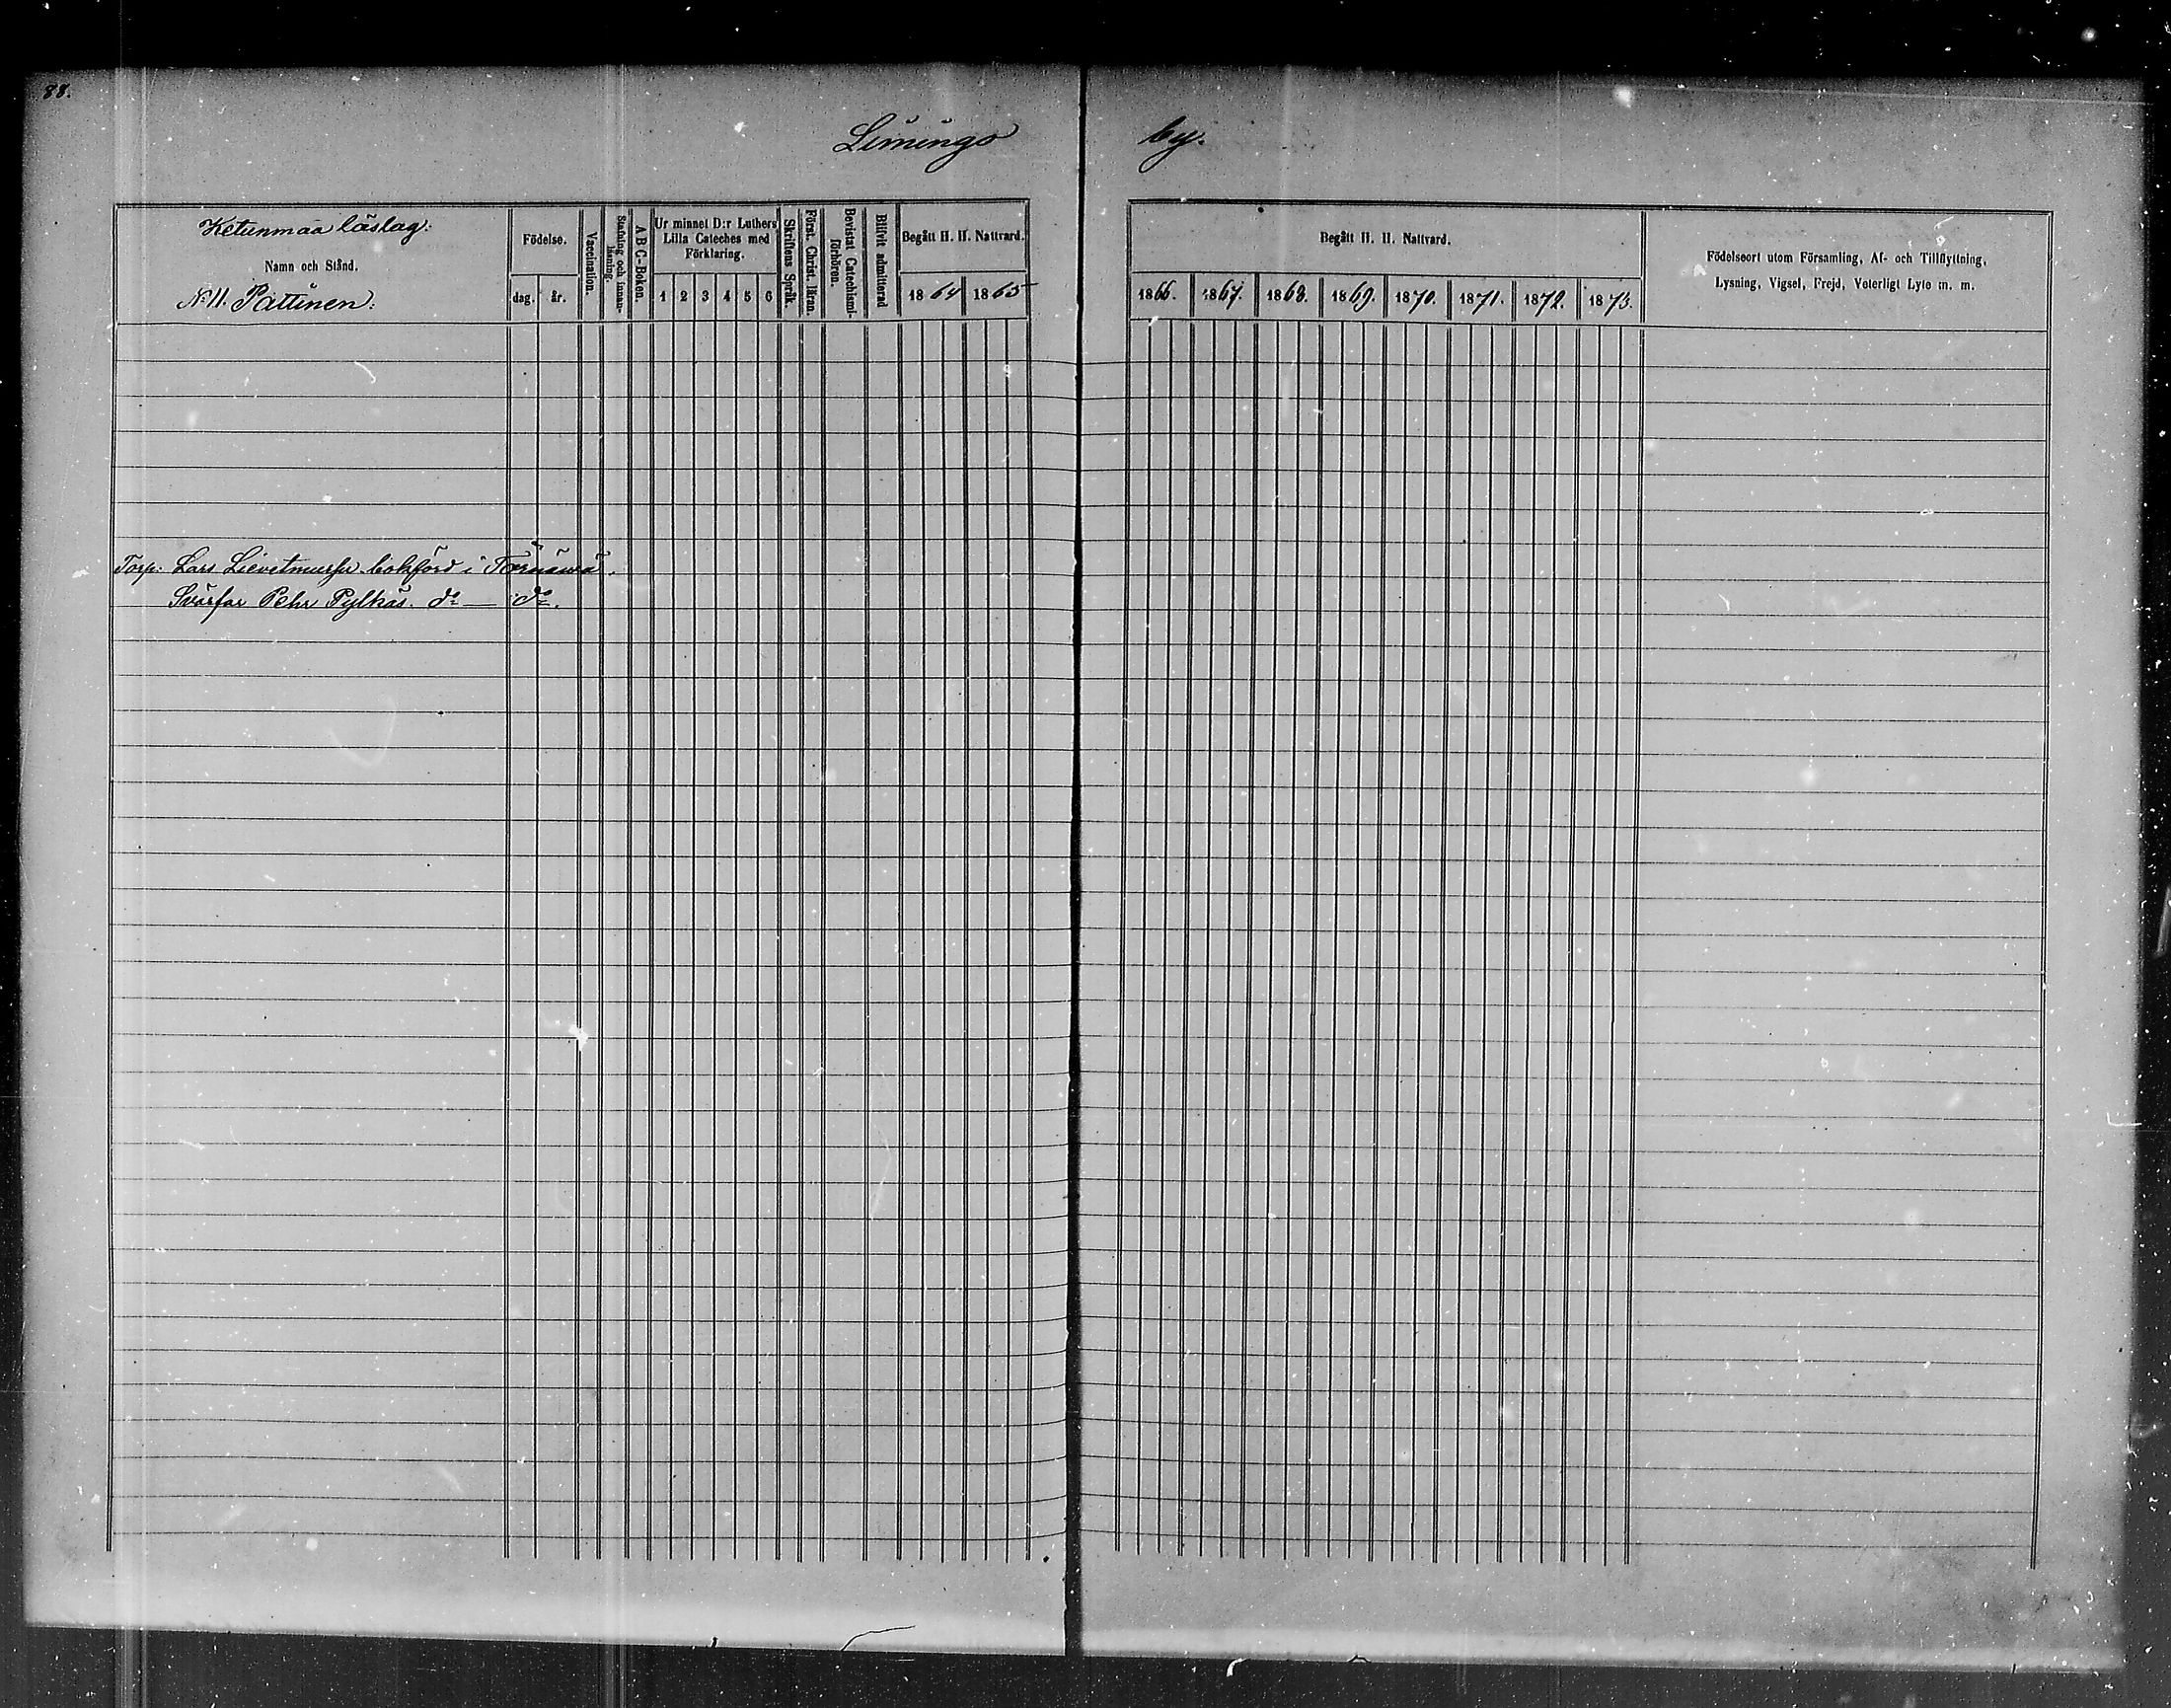 88.
Limingo by.
Ketunmaa läslag:
Namn och Stånd.
N:o 11. Pattinen:
Födelse.
dag. år.
Vaccination.
Stafning och innan-läsning.
A B C-Boken.
Ur minnet D:r Luthers
Lilla Cateches med
Förklaring.
1 2 3 4 5 6
Skriftens Språk.
Först. Christ. läran.
Bevistat Catechismi-förhören.
Blifvit admitterad
Begått H. H. Nattvard.
1864 1865
Begått H. H. Nattvard.
1866. 1867. 1868. 1869. 1870. 1871. 1872. 1873.
Födelseort utom Församling, Af- och Tillflyttning,
Lysning, Vigsel, Frejd, Veterligt Lyte m. m.
Torp: Lars bokförd i
Svärfar Pehr Pylkäs. d:o — d:o.